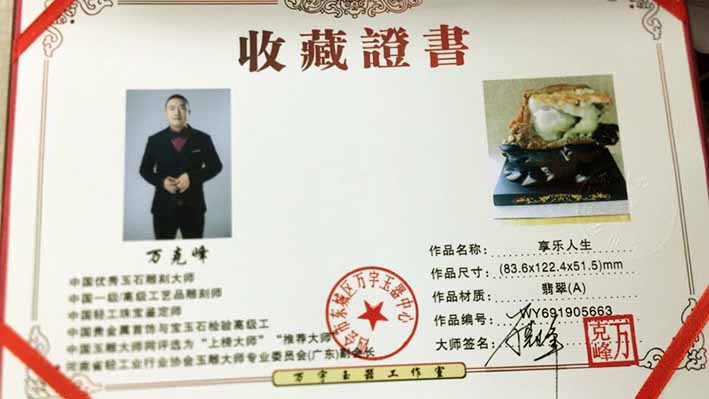 收藏證書
万克峰
中国优秀玉石雕刻大师
中国一级/高级工艺品雕刻师
中国轻工珠宝鉴定师
中国贵金属首饰与宝玉石检验高级工
中国玉雕大师网评选为“上榜大师”“推荐大师”
河南省轻工业行业协会玉雕大师专业委员会(广东)副会长
作品名称：享乐人生
作品尺寸：(83.6x122.4x51.5)mm
作品材质：翡翠(A)
作品编号：WY691905663
大师签名：
万克峰
四会市东城区万字玉器中心
万字玉器工作室